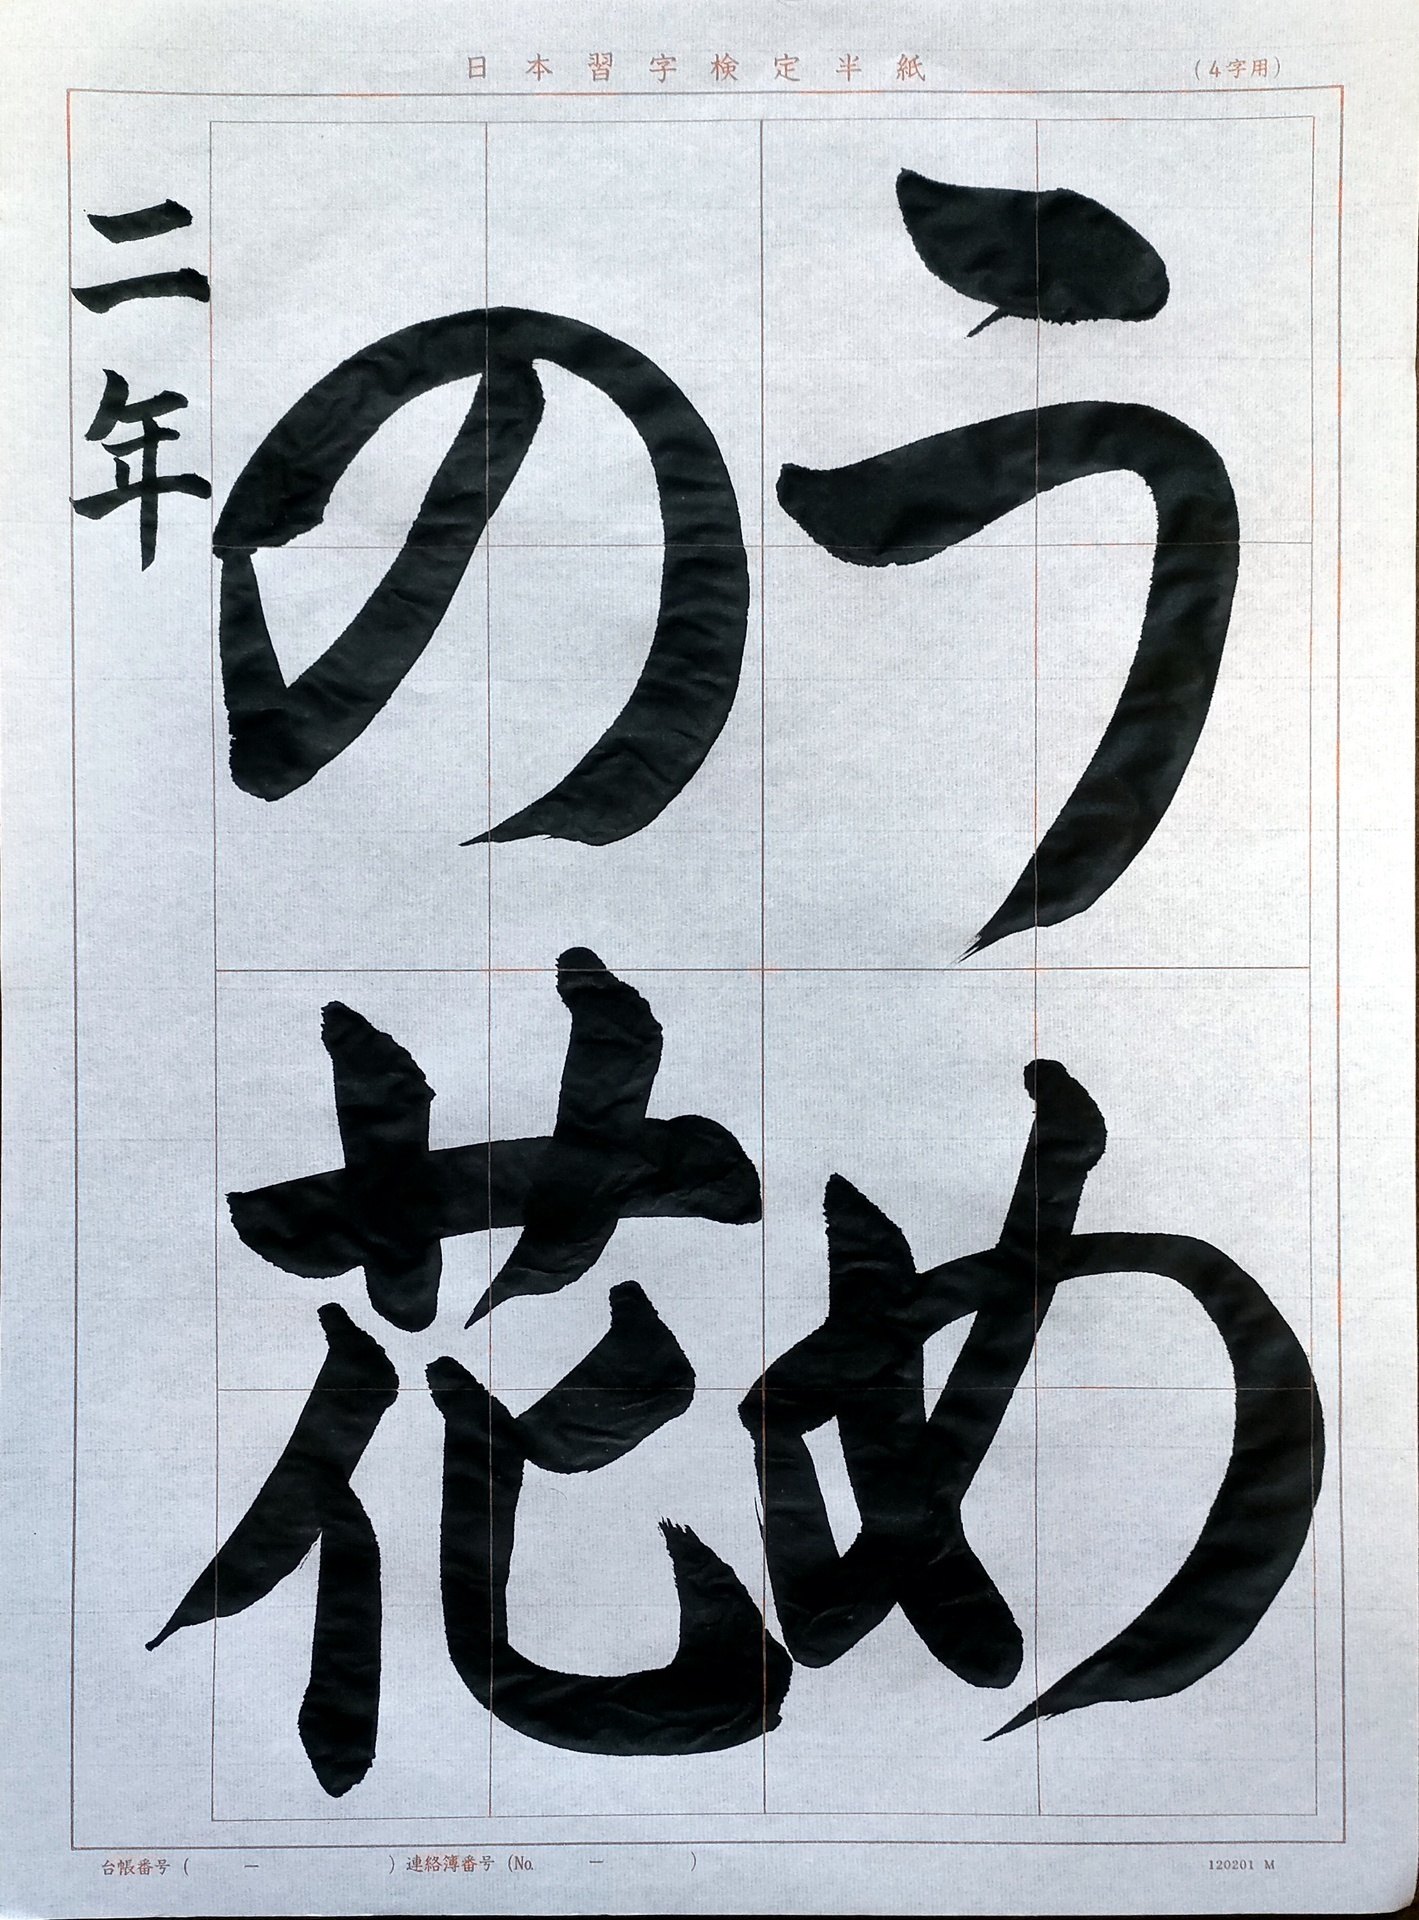 日本習字検定半紙
(4字用)
うめ
の花
二年
台帳番号 ( － ) 連絡簿番号 (No. － )
120201 M